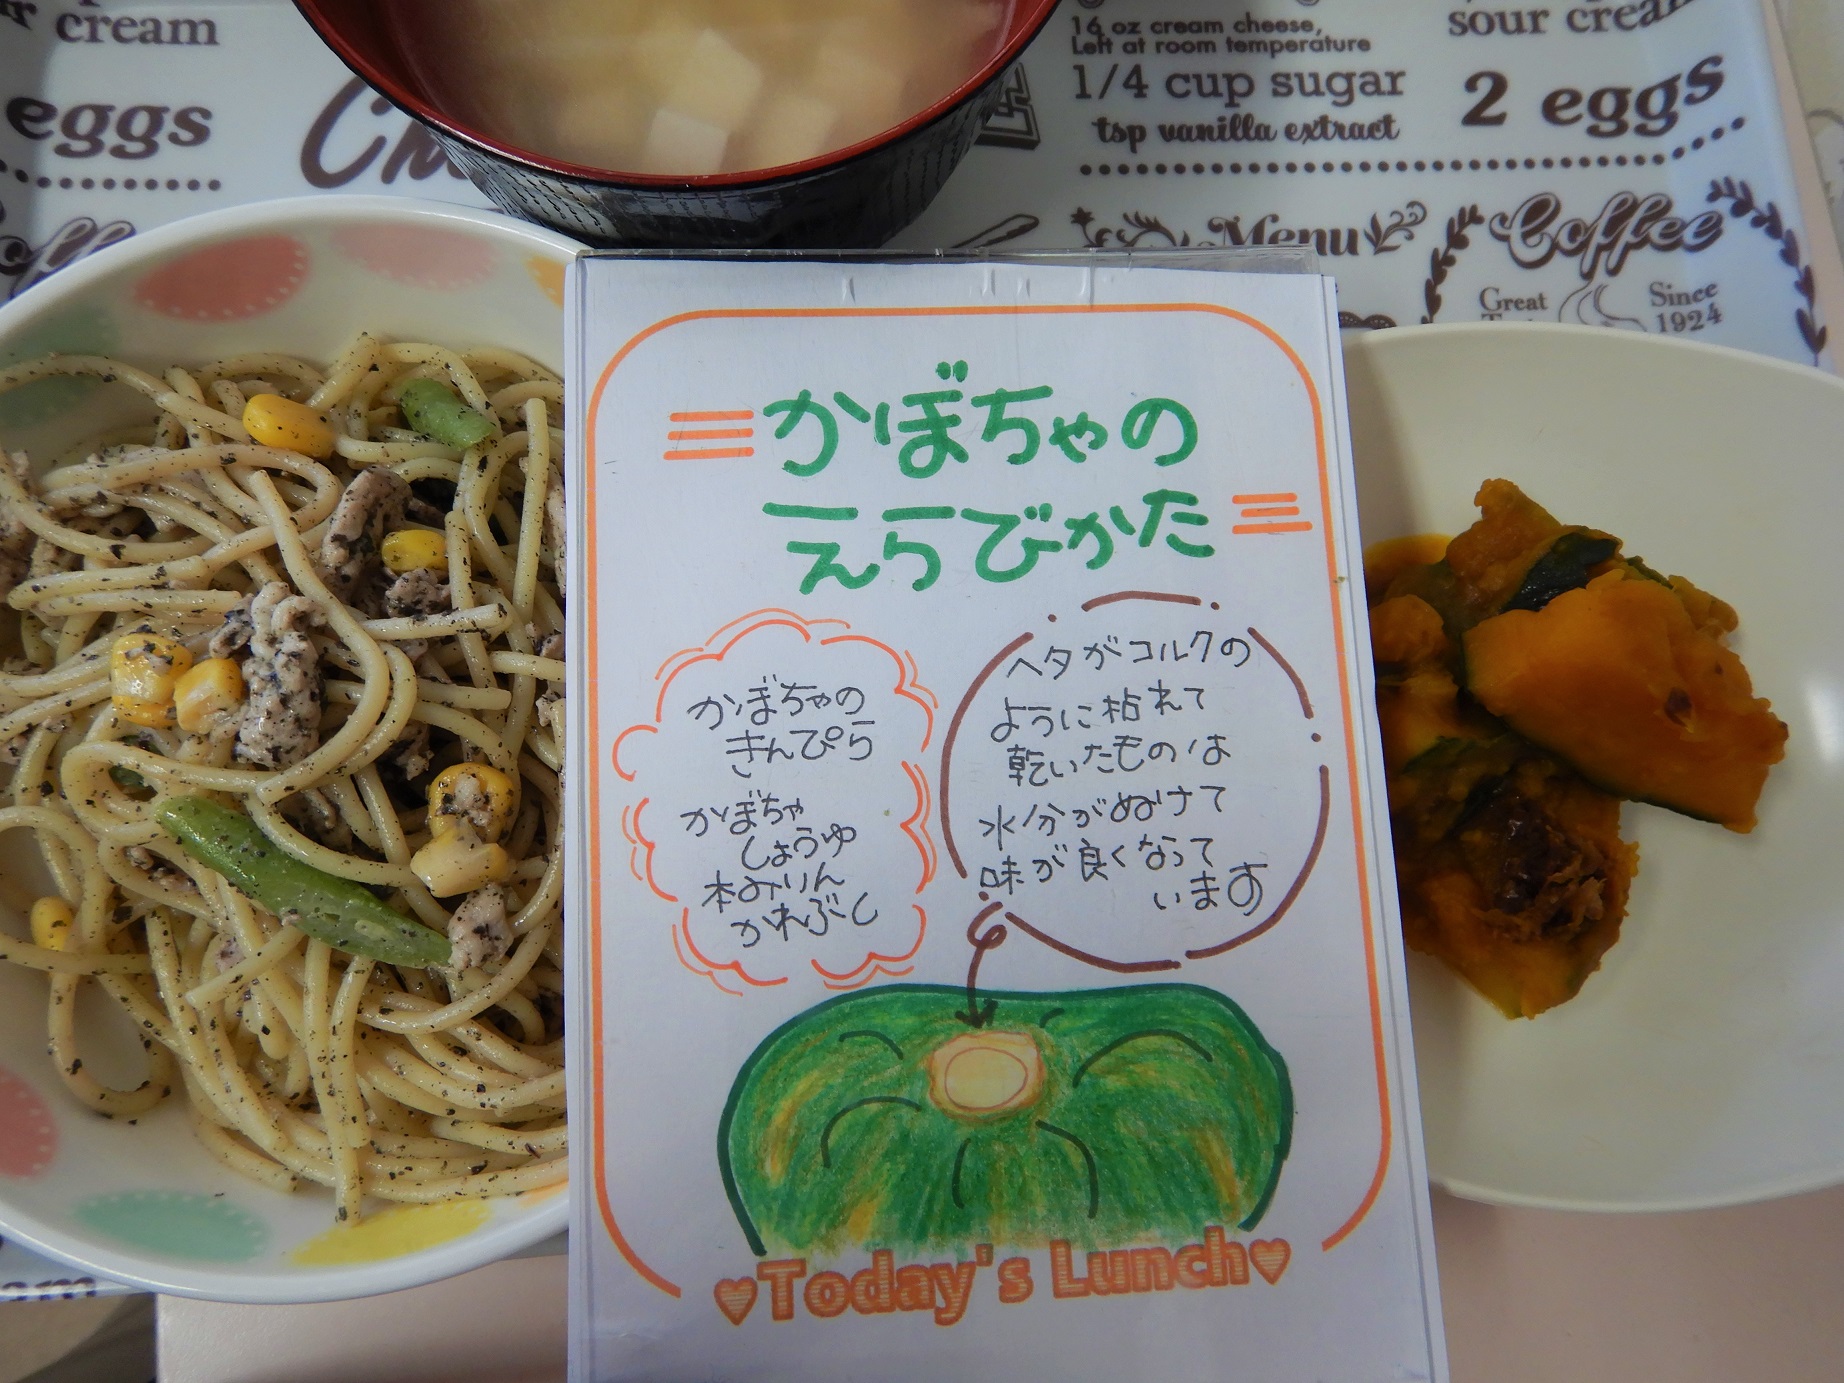 r cream
eggs
Ch
16 oz cream cheese,
Left at room temperature
1/4 cup sugar
tsp vanilla extract
sour cream
2 eggs
Menu
Coffee
Great
Since
1924
かぼちゃの
えらびかた
かぼちゃの
きんぴら
かぼちゃ
しょうゆ
本みりん
かれぶし
ヘタがコルクの
ように枯れて
乾いたものは
水分がぬけて
味が良くなって
います
♥Today's Lunch♥